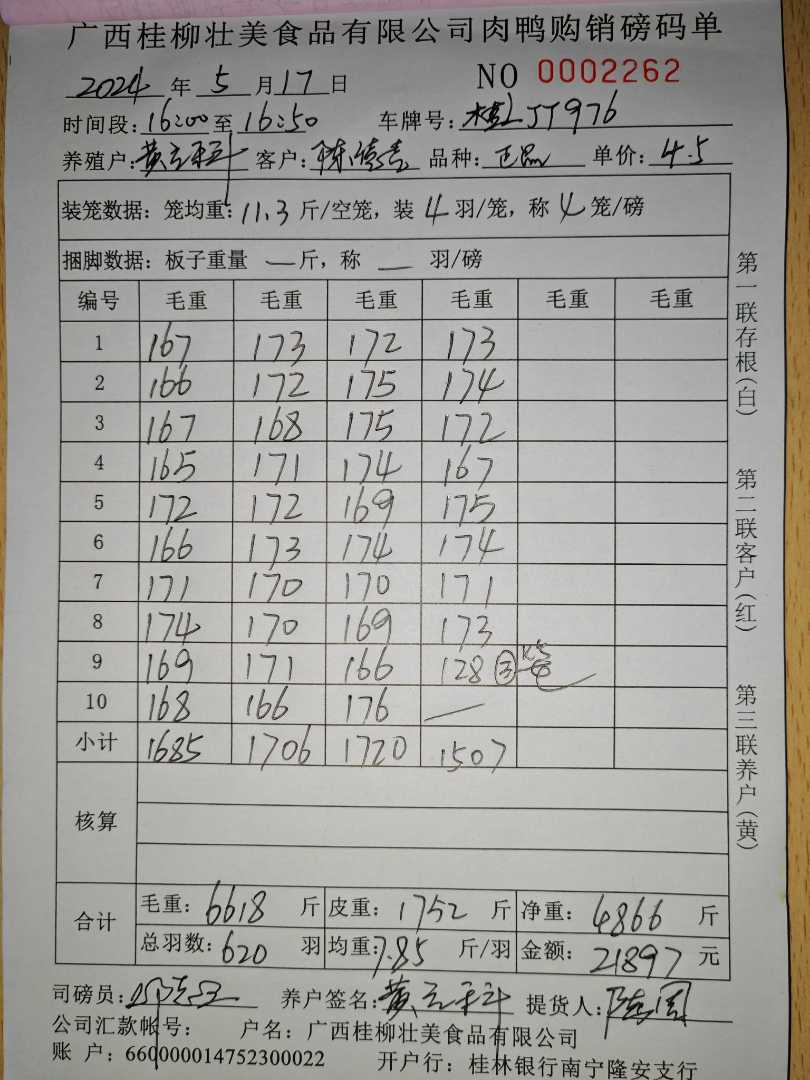 广西桂柳壮美食品有限公司肉鸭购销磅码单
2024 年 5 月 17 日 NO 0002262
时间段: 16:00 至 16:50 车牌号: 桂JJ976
养殖户: 黄 客户: 陈 品种: 正品 单价: 4.5
装笼数据: 笼均重: 11.3 斤/空笼, 装 4 羽/笼, 称 4 笼/磅
捆脚数据: 板子重量 — 斤, 称 — 羽/磅
编号 毛重 毛重 毛重 毛重 毛重 毛重
1 167 173 172 173
2 166 172 175 174
3 167 168 175 172
4 165 171 174 167
5 172 172 169 175
6 166 173 174 174
7 171 170 170 171
8 174 170 169 173
9 169 171 166 128 ③笼
10 168 166 176 —
小计 1685 1706 1720 1507
核算
合计
毛重: 6618 斤 皮重: 1752 斤 净重: 4866 斤
总羽数: 620 羽 均重: 7.85 斤/羽 金额: 21897 元
司磅员: 养户签名: 黄 提货人: 陆周
公司汇款帐号: 户名: 广西桂柳壮美食品有限公司
账 户: 660000014752300022 开户行: 桂林银行南宁隆安支行
第一联存根(白)
第二联客户(红)
第三联养户(黄)